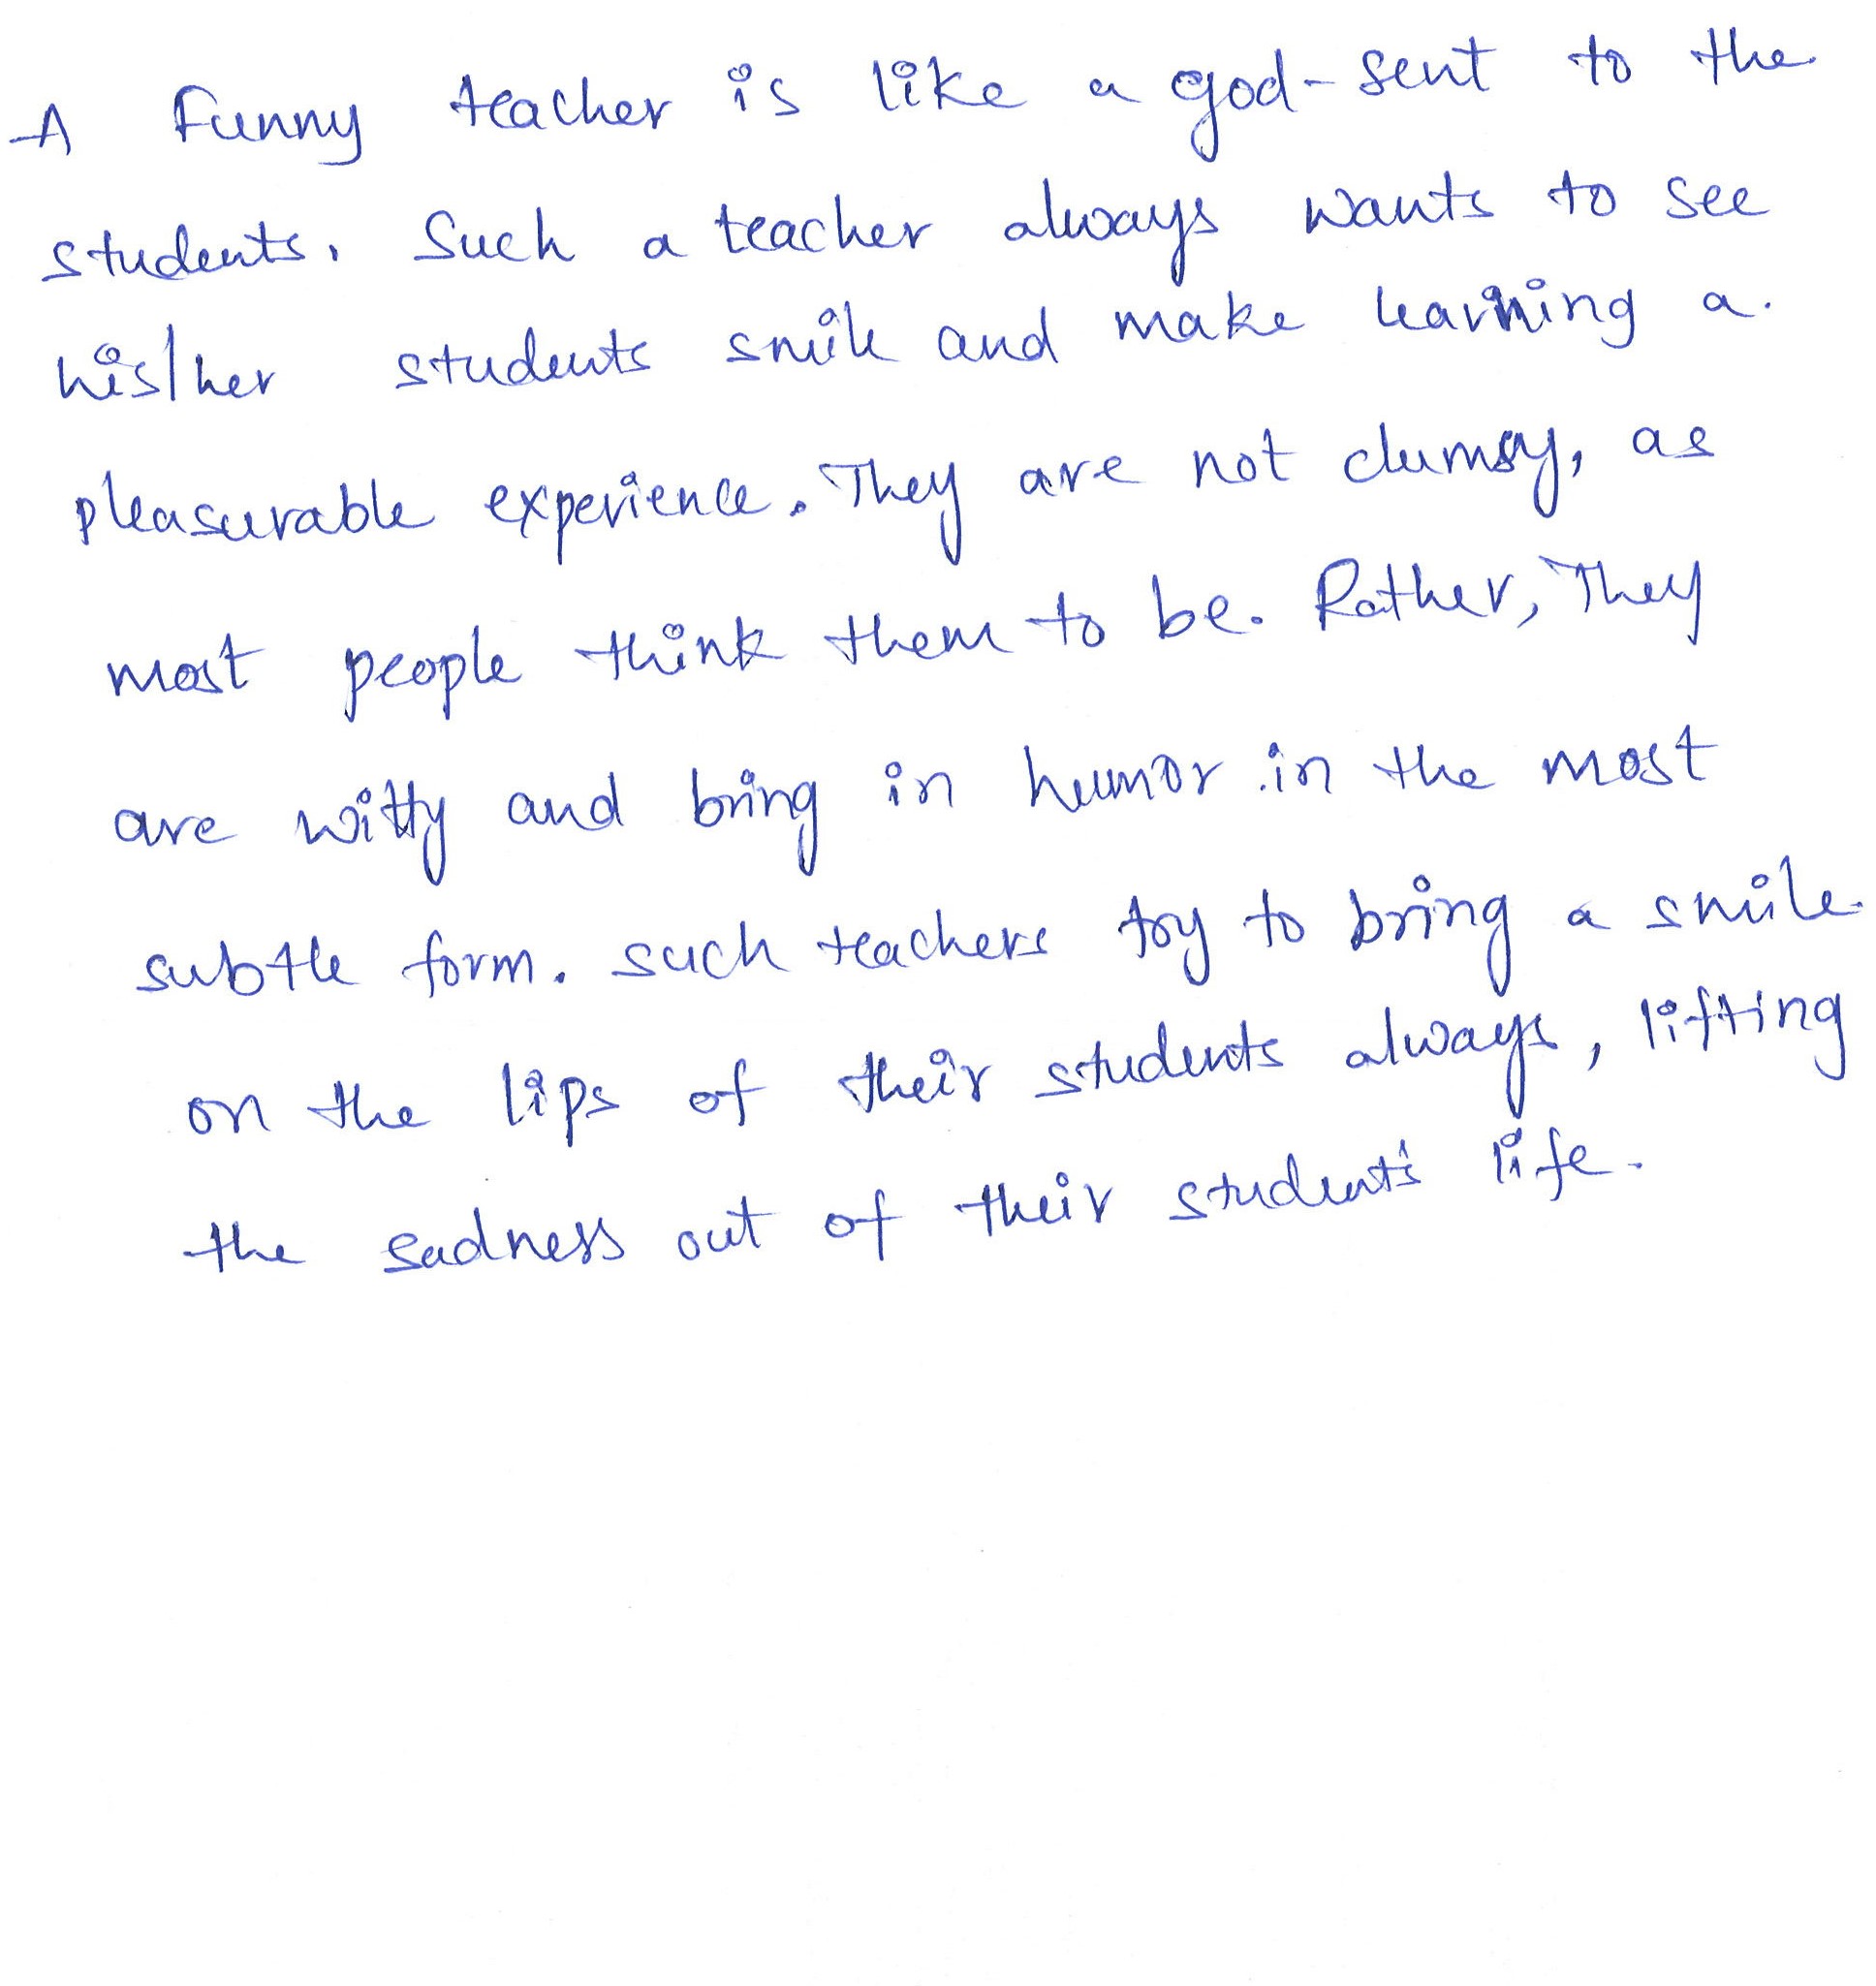 A funny teacher is like a god-sent to the
students. Such a teacher always wants to see
his/her students smile and make learning a
pleasurable experience. They are not clumsy, as
most people think them to be. Rather, They
are witty and bring in humor in the most
subtle form. such teachers try to bring a smile
on the lips of their students always, lifting
the sadness out of their student's life.